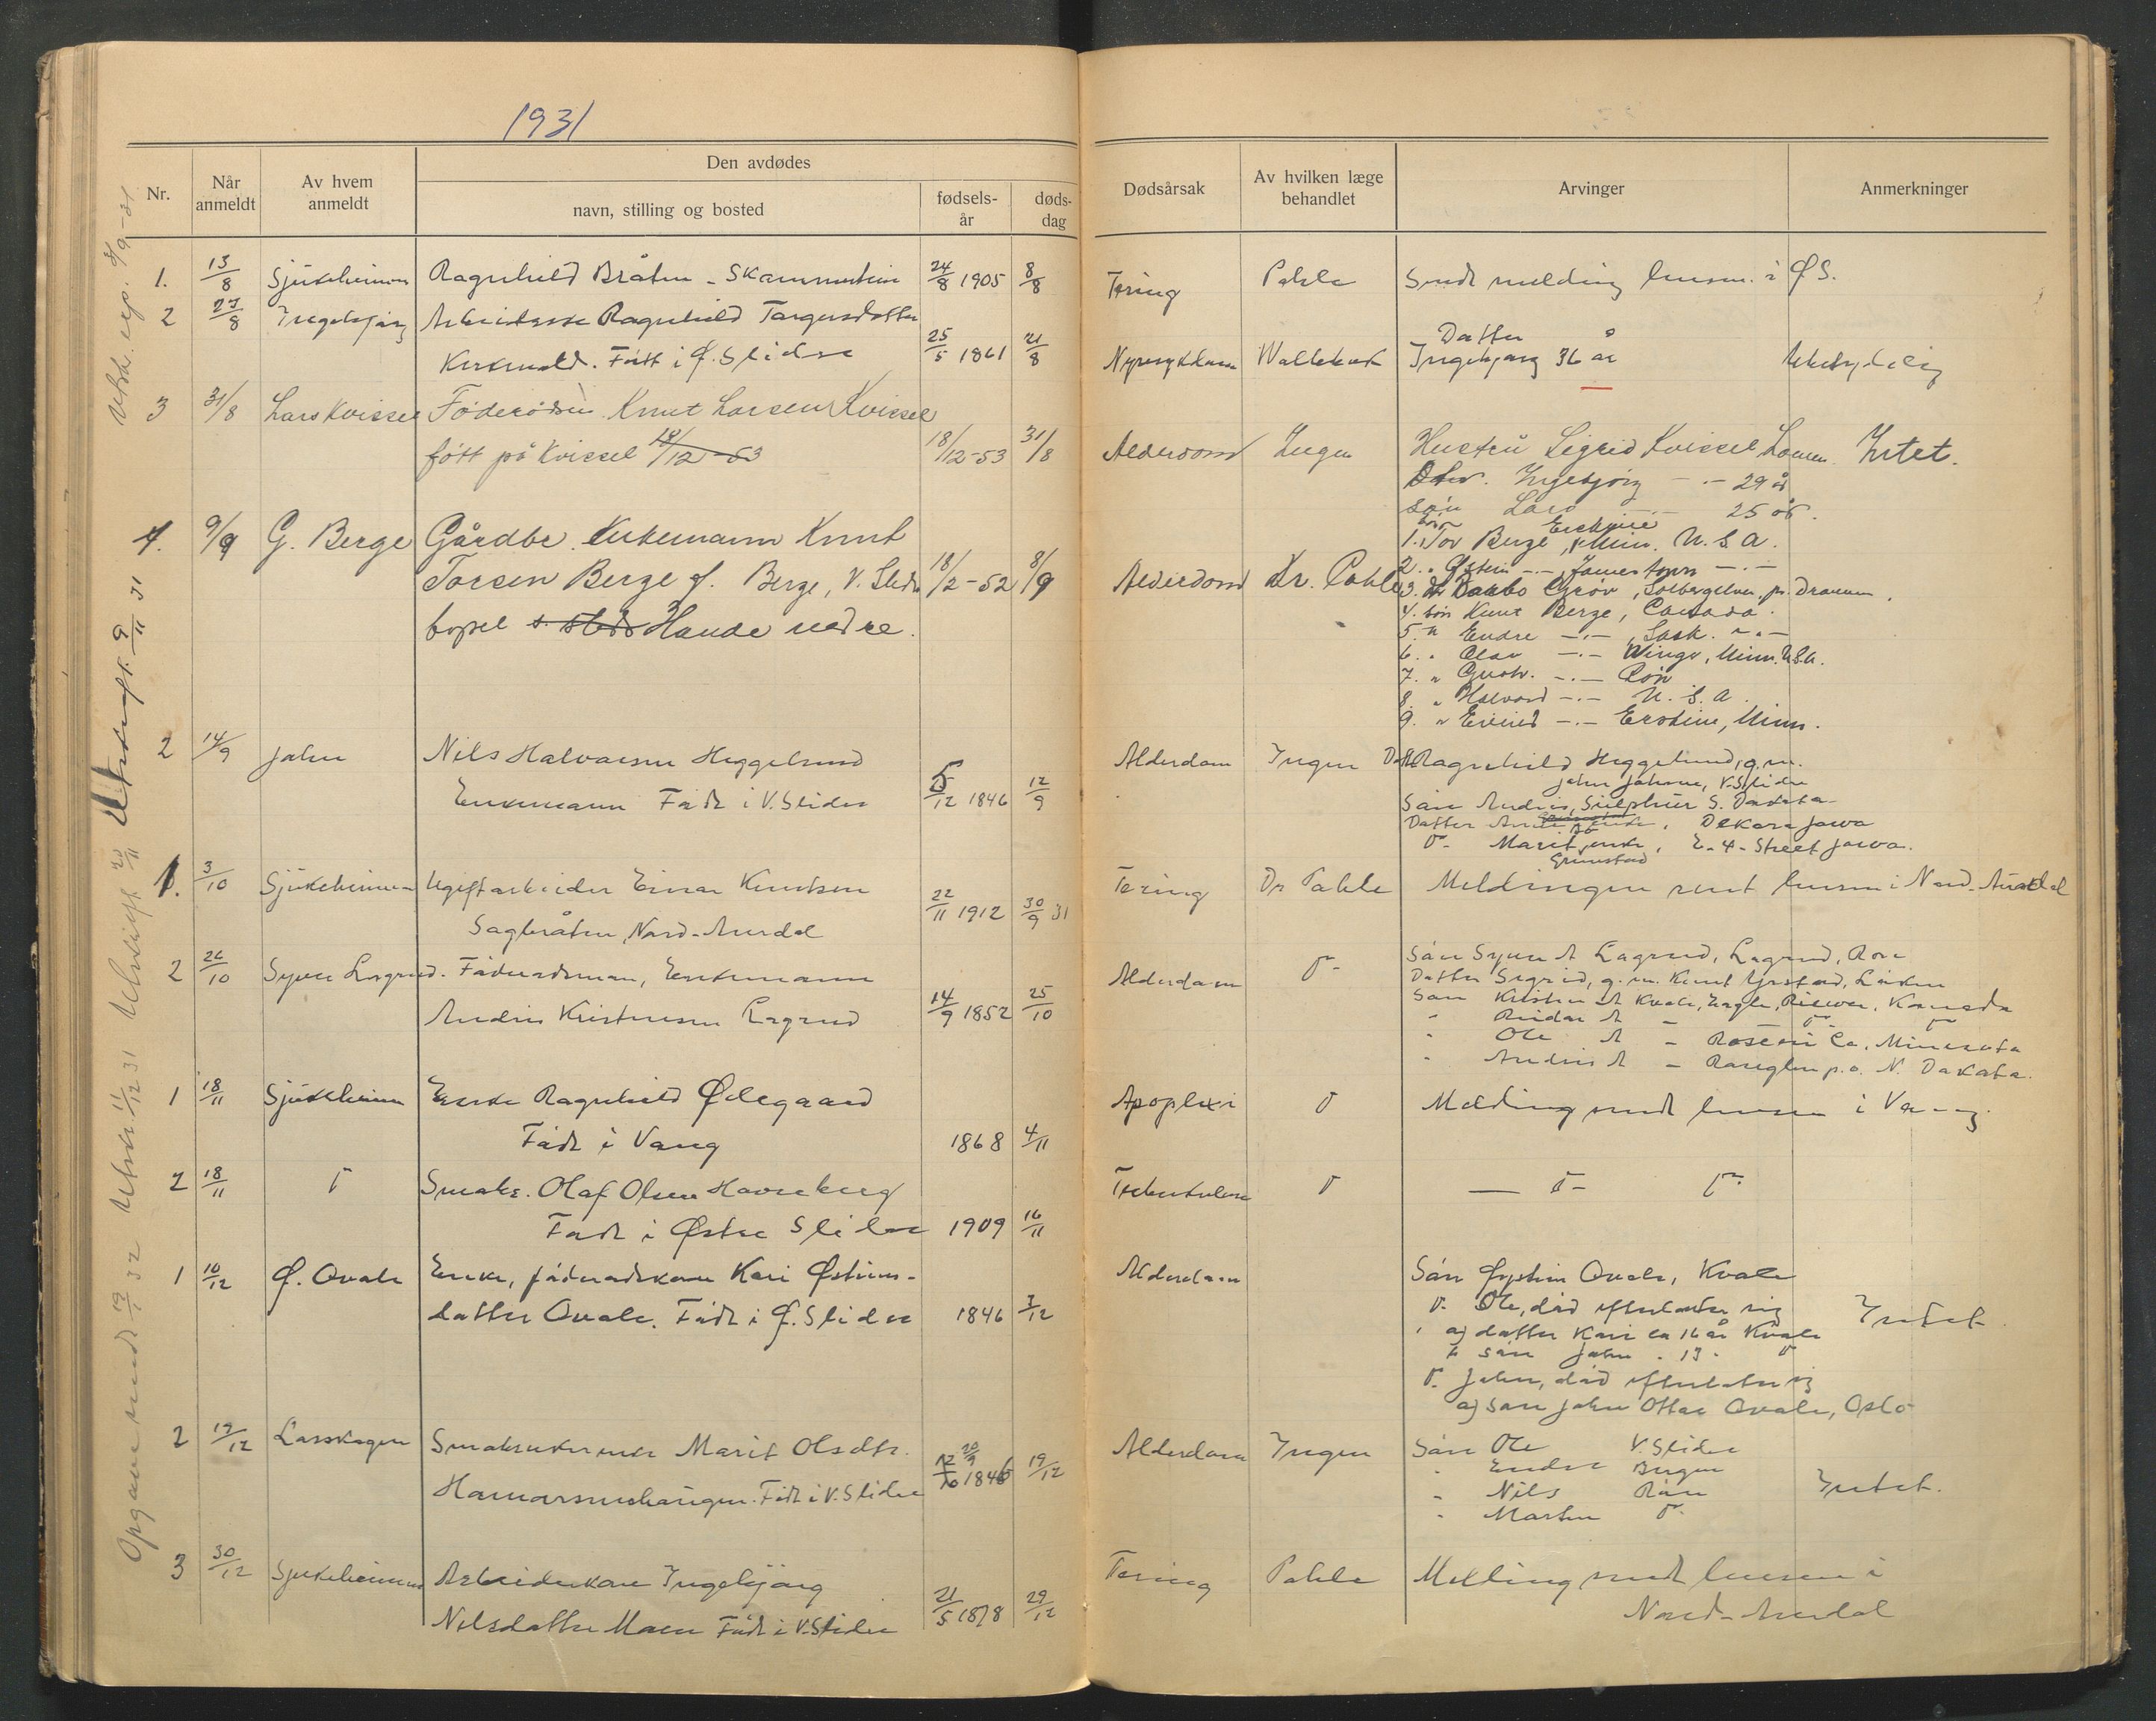 1931
Nr.
Når anmeldt
Av hvem anmeldt
Den avdødes
navn, stilling og bosted
fødsels-år
døds-dag
Dødsårsak
Av hvilken læge behandlet
Arvinger
Anmerkninger
1. 13/8 Sjukeheimen Ragnhild Bråten - Skammestein 24/8 1905 8/8 Tæring Pahle Sendt melding lensm. i Ø S.
2 27/8 Ingebjørg Arbeiderske Ragnhild Torgersdatter
Kirkevold. Født i Ø. Slidre 25/5 1861 21/8 Nyresykdom Datter
Ingebjørg 36 år Ubetydelig
3 31/8 Lars Kvissel Föderådsm. Knut Larsen Kvissel
fött på Kvissel 18/12-53 18/12-53 31/8 Alderdom Ingen Hustru Sigrid Kvissel Lomen. Intet.
Dtr. Ingebjörg -.- 29 år
Sön Lars -.- 25 år.
4. 9/9 G. Berge Gårdbr. Enkemann Knut
Torsen Berge f. Berge, V. Slidre 18/2-52 8/9 Alderdom Dr. Pahle
bopel s. steds Hande nedre.
1. Sön Tor Berge, Erskine, Minn. U.S.A.
2. " Östein -.- Jamestown -.-
3. Gröv, Solbergelven pr. Drammen.
4. sön Knut Berge, Canada.
5. " Endre -.-, Sask. -.-
6. " Olav -.- Winger, Minn. U.S.A.
7. " Gustv. -.- Rön
8. " Halvard -.- U.S.A.
9. " Eivind -.- Erskine, Minn.
2 14/9 John Nils Halvorsen Heggelund
Enkemann Født i V. Slidre 5/12 1846 12/9 Alderdom Ingen Dtr. Ragnhild Heggelund, g.m.
John Johnsen, V. Slidre
Søn Andris, Sulphur S. Dakota
Datter Anne enke, Dekora Jowa
D- Marit, enke, E. 4. Street Jowa.
Grimstad
1. 3/10 Sjukeheimen Ugift arbeider Einar Knutsen
Sagbråten, Nord-Aurdal 22/11 1912 30/9 31 Tæring Dr Pahle Meldingen sent lensm i Nord-Aurdal
2 26/10 Syver Lagrud. Føderådsman, Enkemann
Andris Kristensen Lagrud 14/9 1852 25/10 Alderdom D- Søn Syver A Lagrud, Lagrud, Røn
Datter Sigrid, g.m. Knut Yrstad, Løken
Søn Kristen A Kvale, Eagle, Kanada
" Reidar A - D- D-
" Ole A - Roseau Co., Minesota
" Andris A - Roseglen p.o. N. Dakota.
1 18/11 Sjukeheimen Enke Ragnhild Ødegaard
Født i Vang 1868 4/11 Apoplexi D Melding sendt lensm i Vang.
2 18/11 D Småbr. Olaf Olsen
Født i Østre Slidre 1909 16/11 Tuberkulose D — D- D-
1 10/12 Ø. Qvale Enke, føderådskone Kari Østens-
datter Qvale. Født i Ø. Slidre 1846 7/12 Alderdom Søn Øystein Qvale, Kvale
D- Ole, død efterlater sig
a) datter Kari ca 16 år Kvale
b søn John - 13 - D
D- John, død efterlater sig
a) søn John Ottar Qvale, Oslo
Intet.
2 Småbrukerenke Marit Olsdtr.
Født i V. Slidre 1846 19/12 Alderdom Ingen Søn Ole V. Slidre
" Endre Bergen
" Nils Røn
" Marten D-
Intet.
3 30/12 Sjukeheimen Arbeiderkone Ingebjørg
Nilsdatter Moen Født i V. Slidre 21/5 1878 29/12 Tæring Pahle Melding sendt lensm i
Nord-Aurdal
Utskr. exp. 9/9-31
Utskrift 9/11 31
Utskrift 20/11
Utskr. 11/12 31
Opgave sendt 13/1 32